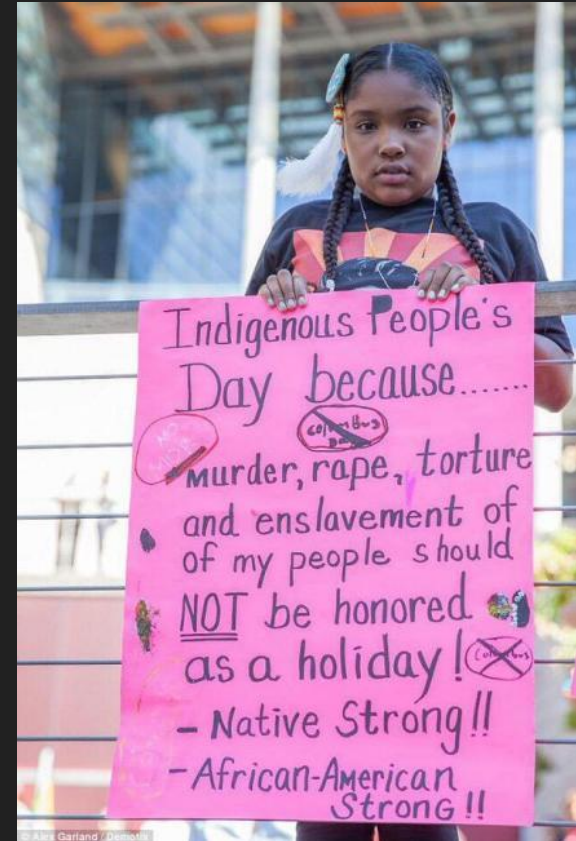 Indigenous People's
Day because.......
Columbus
Day
NO
Murder, rape, torture
and enslavement of
of my people should
NOT be honored
as a holiday!
Columbus
- Native Strong!!
- African-American
Strong!!
© Alex Garland / Demotix